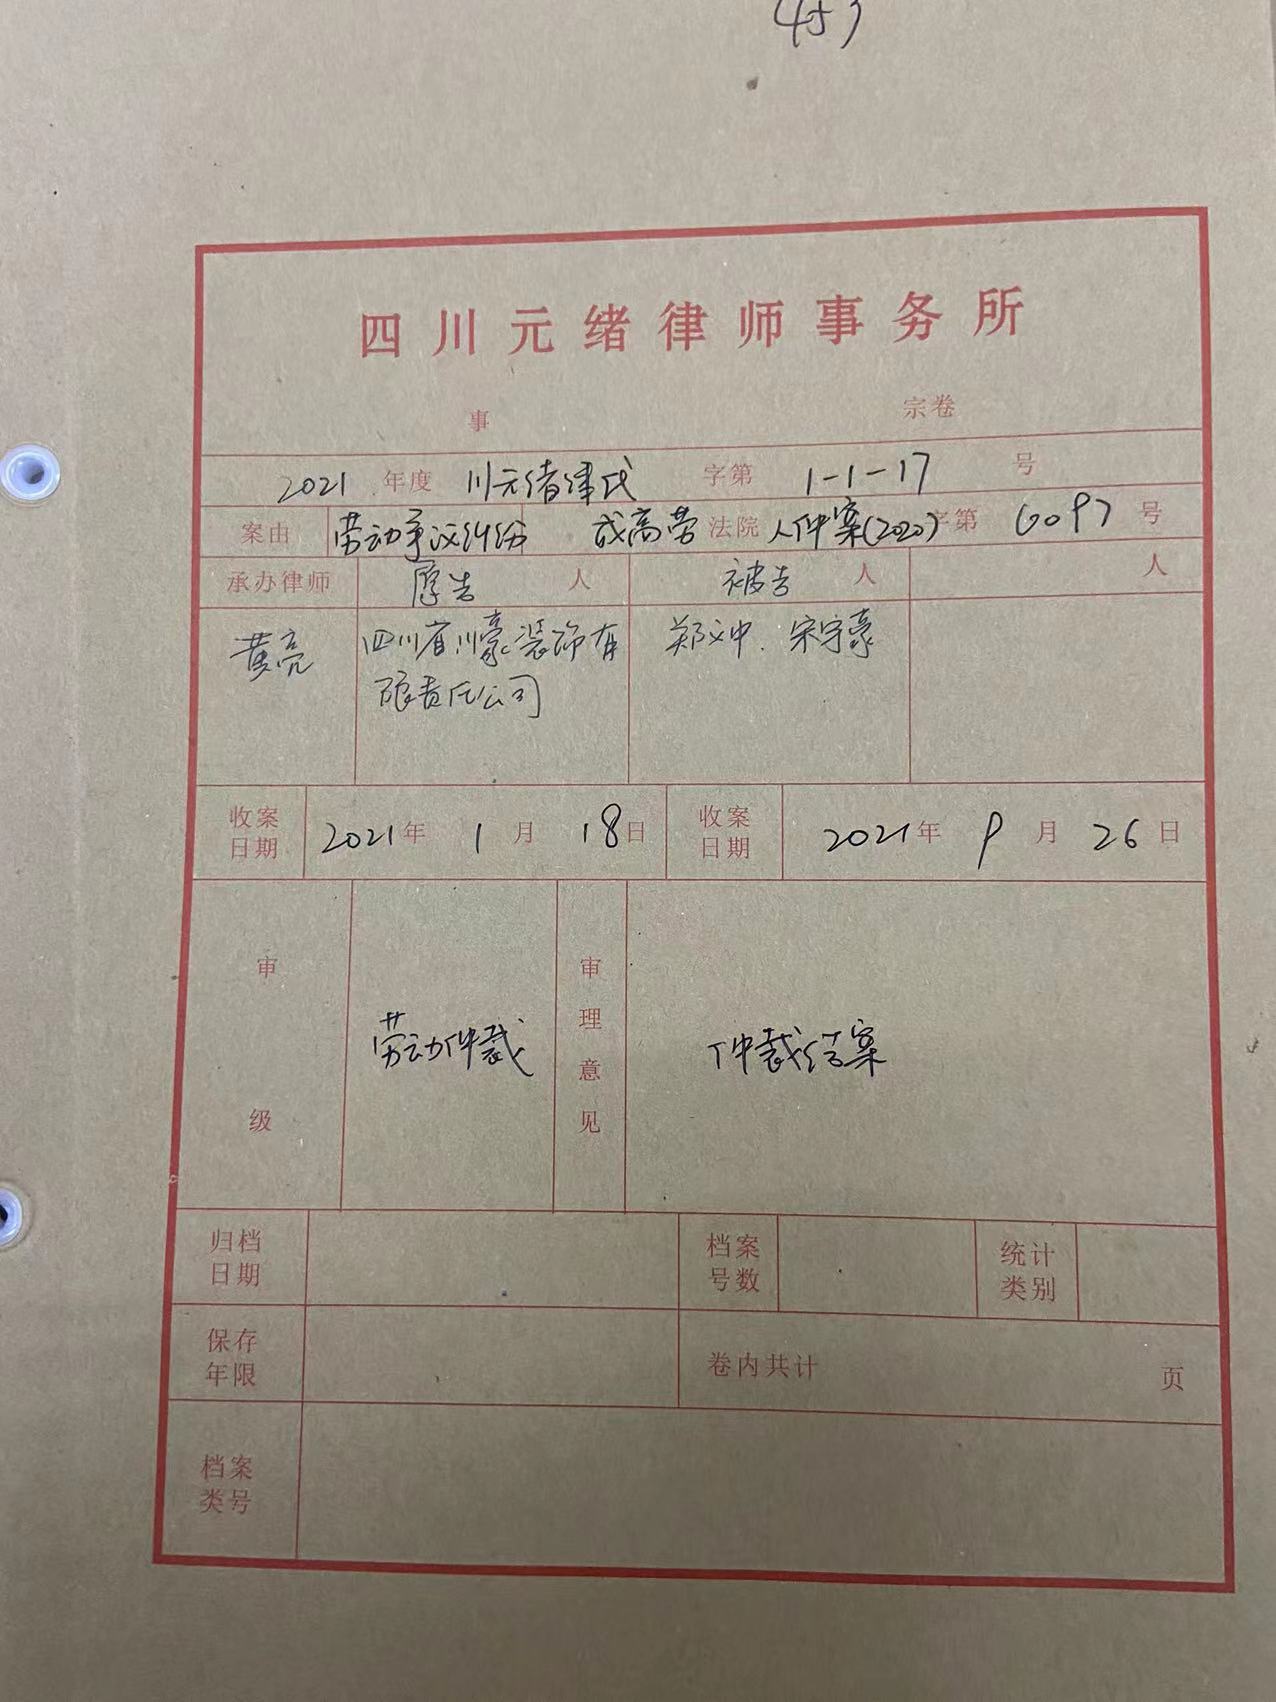 四川元绪律师事务所
事 宗卷
2021 年度 川元绪律民 字第 1-1-17 号
案由 劳动争议纠纷 成高劳法院人仲案(2020)字第 6097 号
承办律师 原告 人 被告 人 人
黄亮 四川省川豪装饰有 郑义中、宋宇豪
限责任公司
收案 收案
日期 2021年 1月 18日 日期 2021年 9月 26日
审 级 劳动仲裁 审理意见 仲裁结案
归档 档案 统计
日期 号数 类别
保存
年限 卷内共计 页
档案
类号